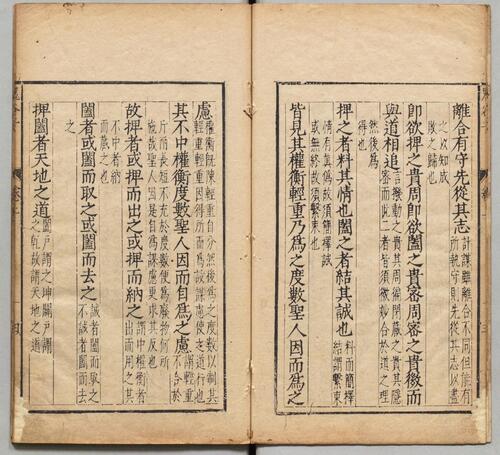 離合有守先從其志
計謀雖離合不同但能有
所執守則先從其志以盡
之以知成
敗之歸也
即欲捭之貴周即欲闔之貴密周密之貴微而
與道相追
言撥動之貴其周徧閉藏之貴其隱
密而此二者皆須微妙合於道之理
然後爲
得也
捭之者料其情也闔之者結其誠也
料而簡擇
結謂繫束
情有眞僞故須簡擇誠
或無終故須繫束也
皆見其權衡輕重乃爲之度數聖人因而爲之
慮
權衡既陳輕重自分然後爲之度數以制其
輕重輕重因得所而爲設謀慮使之道行也
其不中權衡度數聖人因而自爲之慮
謂輕重
不合於
斤兩長短不充於度數便爲廢物何所
施哉聖人因是自爲謀慮更求其反也
故捭者或捭而出之或捭而納之
謂中權衡者
出而用之其
不中者納
而藏之也
闔者或闔而取之或闔而去之
誠者闔而取之
不誠者闔而去
之
捭闔者天地之道
闔戶謂之坤闢戶謂
之乾故謂天地之道
四